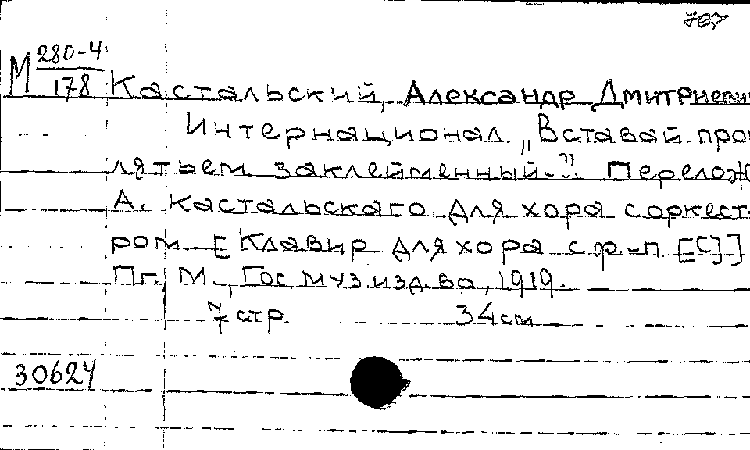 707
М 280-4
178
Кастальский, Александр Дмитриевич
Интернационал „Вставай про
лятьем заклейменный-". Перелож
А. Кастальского для хора с оркест
ром. [Клавир для хора с ф-п [С]]
Пг. М., Гос муз. изд. во, 1919.
7 стр. 34 см
30624